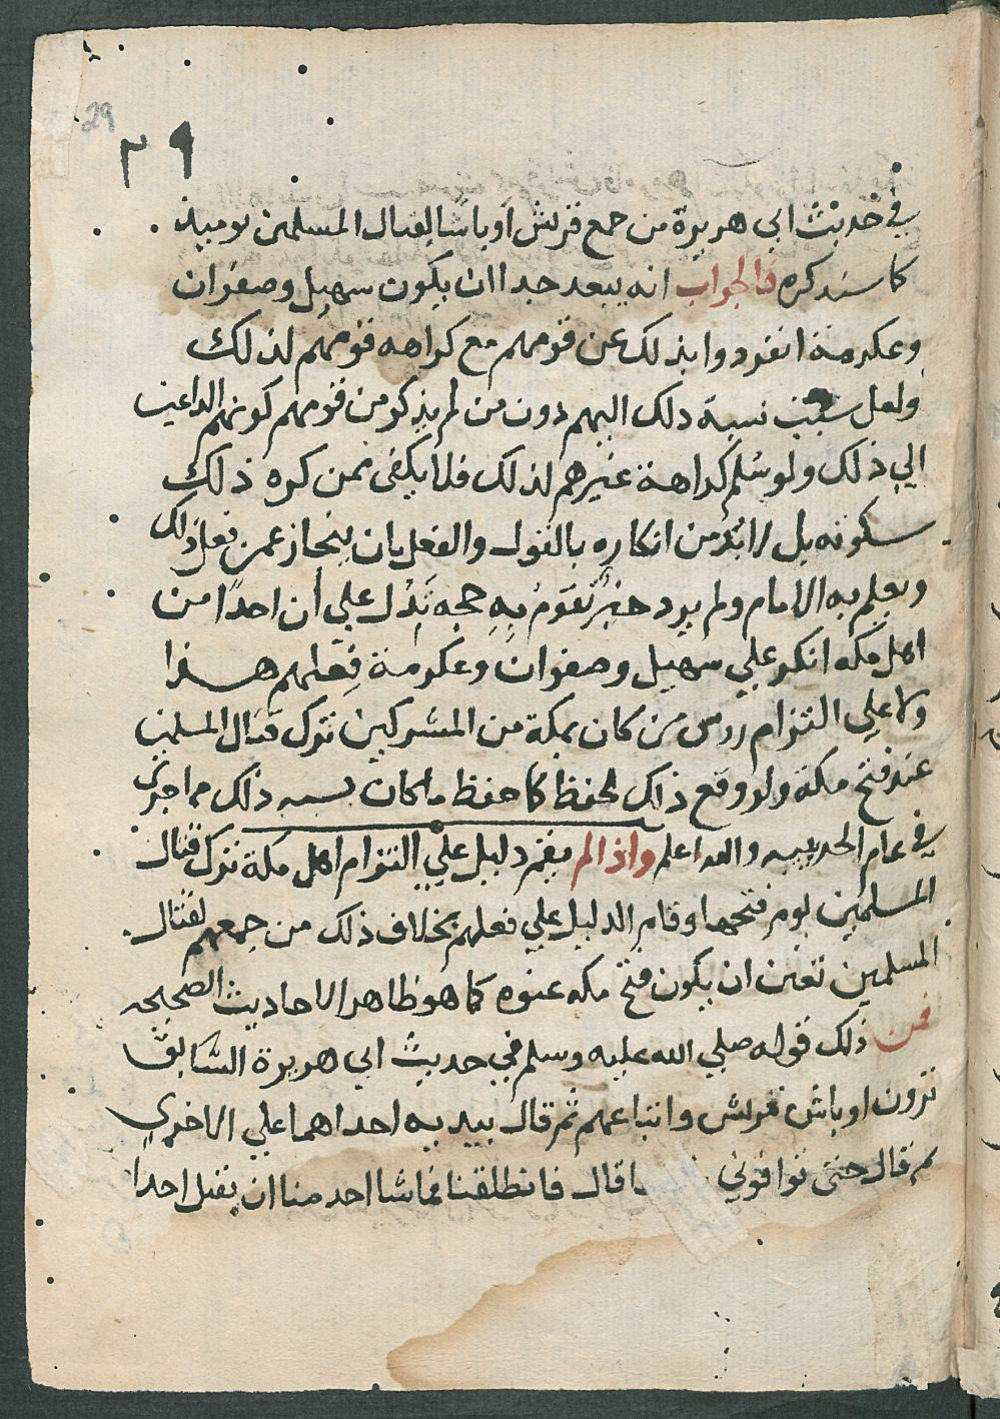 29
٢٩
في حديث ابي هريرة من جمع قريش اوباشا لقتال المسلمين يوميذ
كما سنذكره فالجواب انه يبعد جدا ان يكون سهيل وصفوان
وعكرمة انفردوا بذلك عن قومهم مع كراهه قومهم لذلك
ولعل سبب نسبة ذلك اليهم دون من لم يذكر من قومهم كونهم الداعين
الي ذلك ولو سُلم كراهة غيرهم لذلك فلا يكفى ممن كره ذلك
سكوته بل لا بُدّ من انكاره بالقول والفعل بان ينحاز عمن فعل ذلك
ويعلم به الامام ولم يرد خبرٌ تقومُ بِهِ حجه تَدُل علي أن احدًا من
اهل مكه انكر علي سهيل وصفوان وعكرمة فِعلهم هذا
ولا علي التزام روس من كان بمكة من المشركين بترك قتال المسلمين
عند فتح مكة ولو وقع ذلك لحفظ كما حفظ ما كان يشبه ذلك مما جرى
في عام الحديبيه والله اعلم واذا لم يقم دليل علي التزام اهل مكة ترك قتال
المسلمين يوم فتحها وقام الدليل علي فعلهم بخلاف ذلك من جمعهم لقتال
المسلمين تعين ان يكون فتح مكه عنوه كما هو ظاهر الاحاديث الصحيحه
فمن ذلك قوله صلي الله عليه وسلم في حديث ابي هريرة السَّابق
ترون اوباش قريش واتباعهم ثم قال بيديه احداهما علي الاخرى
ثم قال حتى توافوني قال فانطلقنا فما شا احد منا ان يقتل احدا